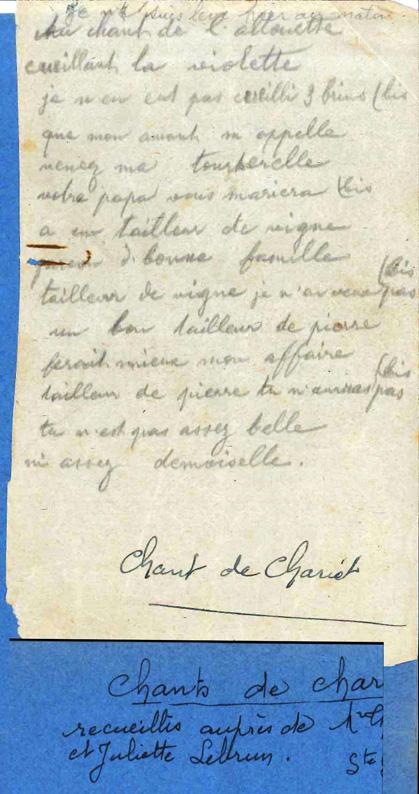 Je m'suis levé hier au matin
Au chant de l'allouette
cueillant la violette
je n'en eut pas cueilli 3 brins (bis
que mon amant m appelle
venez ma tourterelle
votre papa vous mariera (bis
a un tailleur de vigne
d. bonne famille
(bis
tailleur de vigne je n'en veux pas
un bon tailleur de pierre
ferait mieux mon affaire
(bis
tailleur de pierre tu n'auras pas
tu n'est pas assez belle
ni assez demoiselle.
Chant de Chariot
Chants de char
recueillis auprès de
et Juliette Lebrun.
Ste